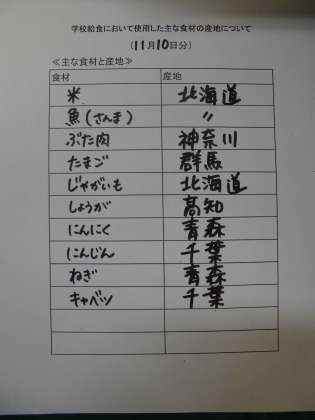 学校給食において使用した主な食材の産地について
(11月10日分)
≪主な食材と産地≫
食材 産地
米 北海道
魚(さんま) 〃
ぶた肉 神奈川
たまご 群馬
じゃがいも 北海道
しょうが 高知
にんにく 青森
にんじん 千葉
ねぎ 青森
キャベツ 千葉